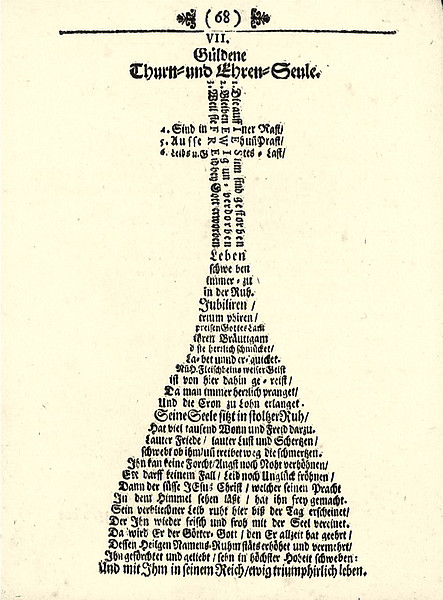 (68)
VII.
Güldene
Thurn- und Ehren-Seule.
1. Die auff IESum sind gestorben
2. Bleiben EWIg un verdorben
3. Weil sie FREudvoll Gott erworben
4. Sind in ner Rast/
5. Auf
6. Leibs u. tes-Last/
Leben
schwe ben
immer-zu
in der Ruh.
Jubiliren/
trium phiren/
preisen Gottes Lam
ihren Bräutigam
d sie herrlich schmücket/
La-bet unnd er-quicket.
Müh-Fleisch weiser Geist
ist von hier dahin ge-reist/
Da man immer herrlich pranget/
Und die Cron zu Lohn erlanget.
Seine Seele sitzt in stoltzer Ruh/
Hat viel tausend Wonn und Freud darzu.
Lauter Friede/ lauter Lust und Schertzen/
schwebt ob ihm/ uñ treibet weg die schmertzen.
Ihn kan keine Forcht/ Angst noch Noht verhöhnen/
Er darff keinem Fall/ Leid noch Unglück fröhnen/
Dann der süsse JEsus Christ/ welcher seinen Pracht
In dem Himmel sehen läßt/ hat ihn frey gemacht.
Sein verblichner Leib ruht hier biß der Tag erscheinet/
Der Ihn wieder frisch und froh mit der Seel vereinet.
Da wird Er der Götter-Gott/ den Er allzeit hat geehrt/
Dessen Heilgen Namens-Ruhm stäts erhöhet und vermehrt/
Ihn geförchtet und geliebt/ sehn in höchster Hoheit schweben:
Und mit Ihm in seinem Reich/ ewig triumphirlich leben.